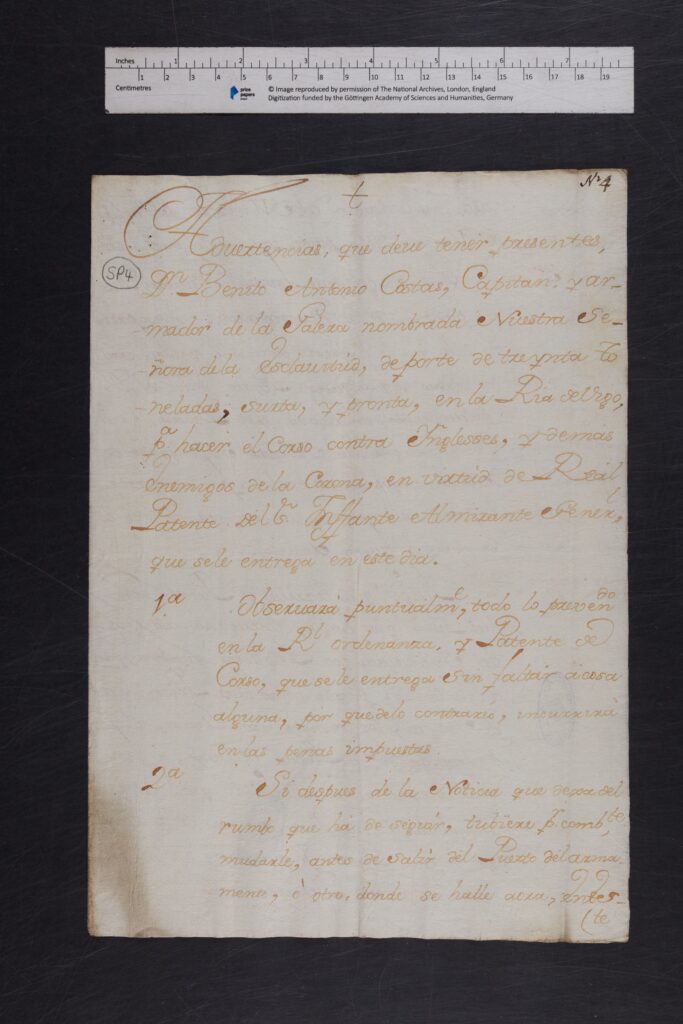 Inches 1 2 3 4 5 6 7
1 2 3 4 5 6 7 8 9 10 11 12 13 14 15 16 17 18 19
Centimetres
prize papers
© Image reproduced by permission of The National Archives, London, England
Digitization funded by the Göttingen Academy of Sciences and Humanities, Germany
t
Nº 4
SP4
Aduertencias, que deue tener presentes,
Dn. Benito Antonio Costas, Capitan. y ar-
mador de la Galera nombrada Nuestra Se-
-ñora dela Esclauitud, de porte de treynta to
-neladas, surta, y pronta, en la Ria de Vigo,
pa. hacer el Corso contra Ynglesses, y demas
Enemigos de la Corona, en virtud de Real
Patente del Sr. Ynffante Almirante Generl,
que sele entrega en este dia.
1a. Obseruará puntualmte, todo lo prevendo
en la Rl. ordenanza, y Patente de
Corso, que sele entrega sin faltar a cosa
alguna, por que delo contrario, incurrirá
en las penas impuestas.
2a. Si despues de la Noticia que dexa del
rumbo que há de seguir, tubiere pr. combte
mudarle, antes de salir del Puerto del arma
mento, ò otro, donde se halle
(te